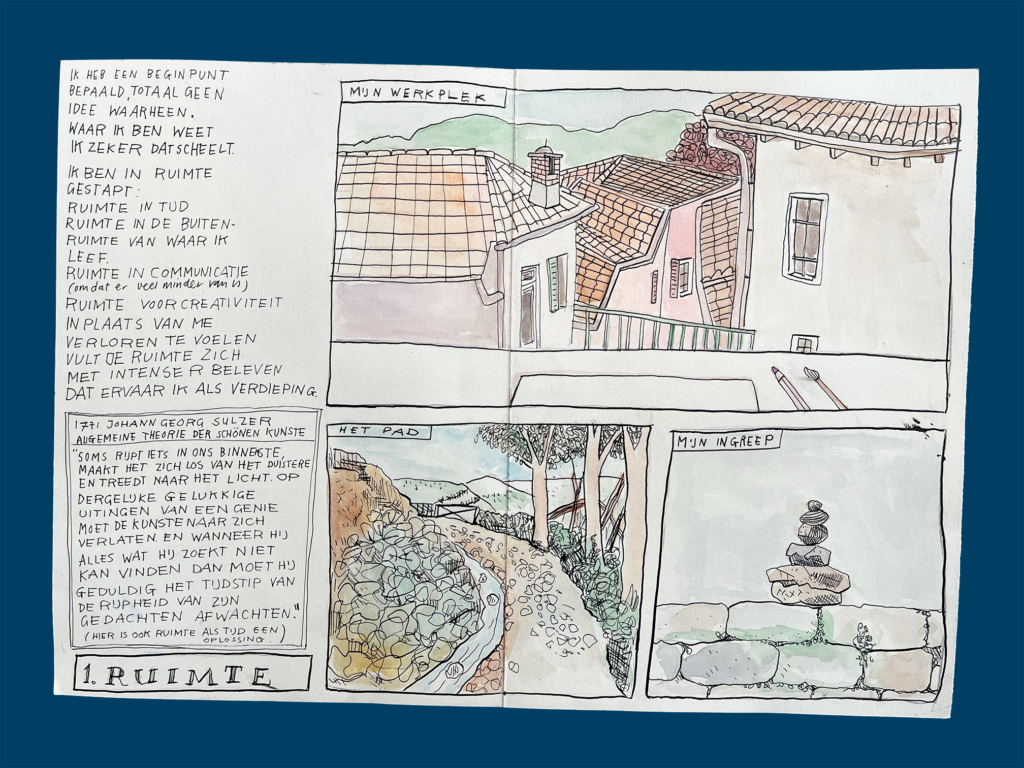 IK HEB EEN BEGINPUNT
BEPAALD, TOTAAL GEEN
IDEE WAARHEEN.
WAAR IK BEN WEET
IK ZEKER DAT SCHEELT.
IK BEN IN RUIMTE
GESTAPT:
RUIMTE IN TIJD
RUIMTE IN DE BUITEN-
RUIMTE VAN WAAR IK
LEEF.
RUIMTE IN COMMUNICATIE
(omdat er veel minder van is)
RUIMTE VOOR CREATIVITEIT
IN PLAATS VAN ME
VERLOREN TE VOELEN
VULT DE RUIMTE ZICH
MET INTENSER BELEVEN
DAT ERVAAR IK ALS VERDIEPING.
1771 JOHANN GEORG SULZER
ALGEMEINE THEORIE DER SCHÖNEN KUNSTE
"SOMS RIJPT IETS IN ONS BINNENSTE,
MAAKT HET ZICH LOS VAN HET DUISTERE
EN TREEDT NAAR HET LICHT. OP
DERGELIJKE GELUKKIGE
UITINGEN VAN EEN GENIE
MOET DE KUNSTENAAR ZICH
VERLATEN. EN WANNEER HIJ
ALLES WAT HIJ ZOEKT NIET
KAN VINDEN DAN MOET HIJ
GEDULDIG HET TIJDSTIP VAN
DE RIJPHEID VAN ZIJN
GEDACHTEN AFWACHTEN."
(HIER IS OOK RUIMTE ALS TIJD EEN)
OPLOSSING.
1. RUIMTE
MIJN WERKPLEK
HET PAD
MIJN INGREEP